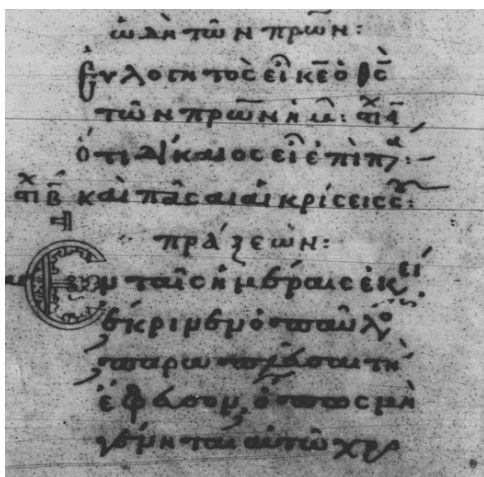 ὠδὴ τῶν πρω̅ν:
Εὐλογητὸς εἶ κ̅ε ὁ θ̅ς
τῶν πρω̅ν ἡμ: στιχ α
ὅτι δίκαιος εἶ ἐπὶ π
στιχ β καὶ πᾶσαι αἱ κρίσεις σ:
πράξεων:
Ἐν ταῖς ἡμέραις ἐκεί
ἔκρινεν ὁ παῦλο
παραπλεῦσαι τὴ
ἔφεσον, ὅπως μὴ
γένηται αὐτῶ χρο